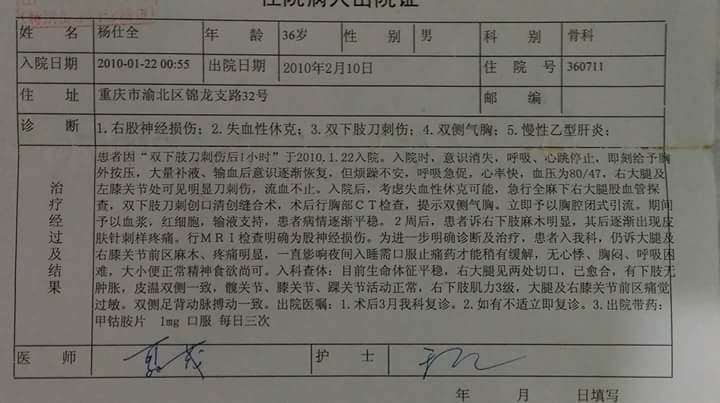 住院病人出院证
姓 名 杨仕全 年 龄 36岁 性 别 男 科 别 骨科
入院日期 2010-01-22 00:55 出院日期 2010年2月10日 住 院 号 360711
住 址 重庆市渝北区锦龙支路32号 邮 编
诊 断 1.右股神经损伤；2.失血性休克；3.双下肢刀刺伤；4.双侧气胸；5.慢性乙型肝炎；
治疗经过及结果
患者因“双下肢刀刺伤后1小时”于2010.1.22入院。入院时，意识消失，呼吸、心跳停止，即刻给予胸
外按压，大量补液、输血后意识逐渐恢复，但烦躁不安，呼吸急促，心率快，血压为80/47，右大腿及
左膝关节处可见明显刀刺伤，流血不止。入院后，考虑失血性休克可能，急行全麻下右大腿股血管探
查，双下肢刀刺创口清创缝合术，术后行胸部CT检查，提示双侧气胸。立即予以胸腔闭式引流。期间
予以血浆，红细胞，输液支持，患者病情逐渐平稳。2周后，患者诉右下肢麻木明显，其后逐渐出现皮
肤针刺样疼痛。行MRI检查明确为股神经损伤。为进一步明确诊断及治疗，患者入我科，仍诉大腿及
右膝关节前区麻木、疼痛明显，一直影响夜间入睡需口服止痛药才能稍有缓解，无心悸、胸闷、呼吸困
难，大小便正常精神食欲尚可。入科查体：目前生命体征平稳，右大腿见两处切口，已愈合，有下肢无
肿胀，皮温双侧一致，髋关节、膝关节、踝关节活动正常，右下肢肌力3级，大腿及右膝关节前区痛觉
过敏。双侧足背动脉搏动一致。出院医嘱：1.术后3月我科复诊。2.如有不适立即复诊。3.出院带药：
甲钴胺片 1mg 口服 每日三次
医 师 护 士
年 月 日填写